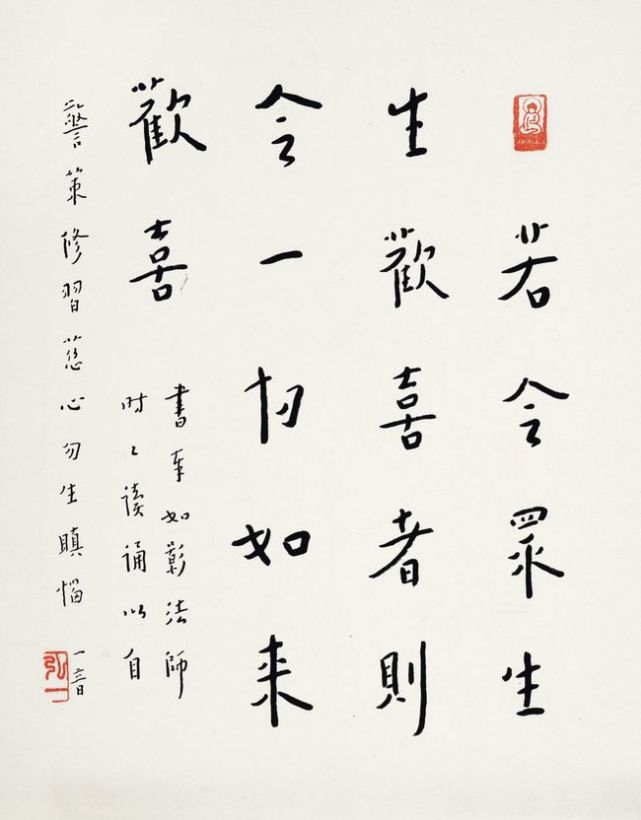 若令眾生
生歡喜者則
令一切如来
歡喜
書奉如影法師
时々读诵以自
警策修習慈心勿生瞋惱
一音
弘一